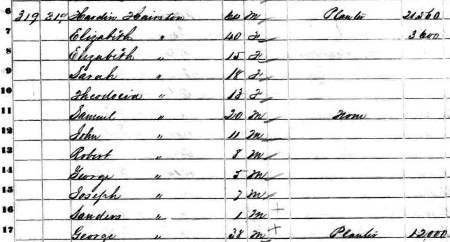 6 319 Hardin Hairston M Planter 21560
7 Elizabeth " 40 F 3600
8 Elizabeth " 15 F
9 Sarah " 18 F
10 Theodocia " 13 F
11 Samuel " 20 M None
12 John " 11 M
13 Robert " 8 M
14 George " 5 M
15 Joseph " M
16 Sanders " 1 M +
17 George " 38 M + Planter 12000